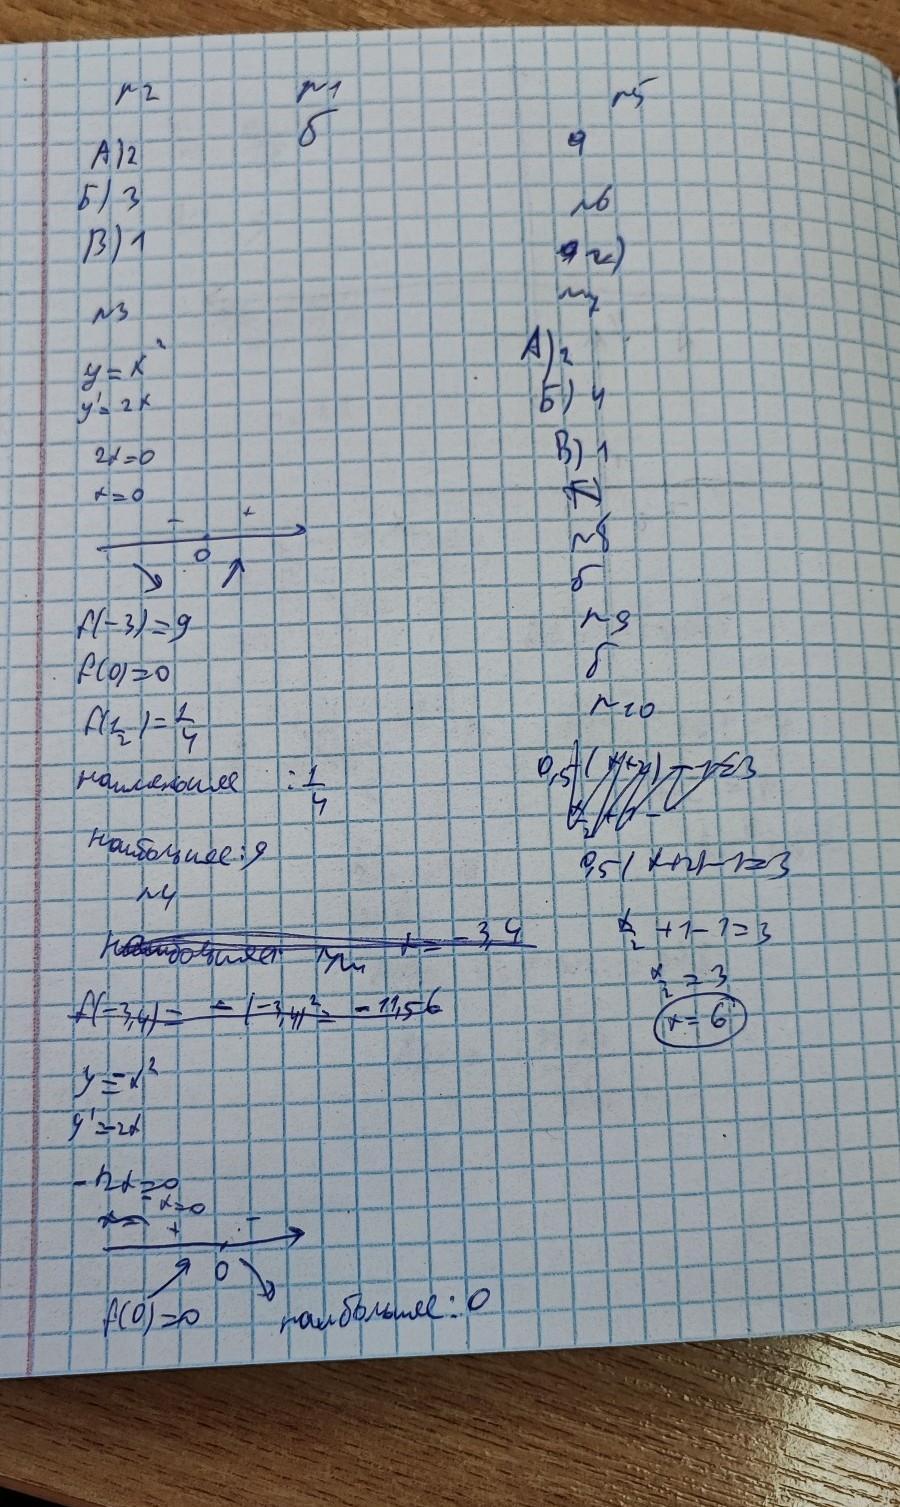 №2
А) 2
Б) 3
В) 1
№3
y = x²
y' = 2x
2x=0
x=0
- +
0
f(-3)=9
f(0)=0
f(1/2)=1/4
наименьшее : 1/4
наибольшее: 9
№4
x = -3,4
f(-3,4) = -(-3,4)² = -11,56
y = -x²
y' = -2x
-2x=0
x=0
x=
+ -
0
f(0)=0
наибольшее: 0
№1
б
№5
№6
№7
А) 2
Б) 4
В) 1
№8
б
№9
б
№10
0,5(x+2)-1=3
0,5(x+2)-1=3
x/2 + 1 - 1 = 3
x/2 = 3
x = 6